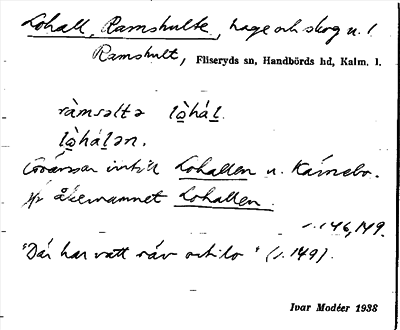 Lohall, Ramshulte, hage och skog u. l.
Ramshult, Fliseryds sn, Handbörds hd, Kalm. l.
ràmsəltə lo̱há̱l.
lo̱há̱lən.
intill Lohallen u. Kårnebo.
åkernamnet Lohallen.
s. 146, 149.
"Där har vatt räv och lo" (s. 149).
Ivar Modéer 1938